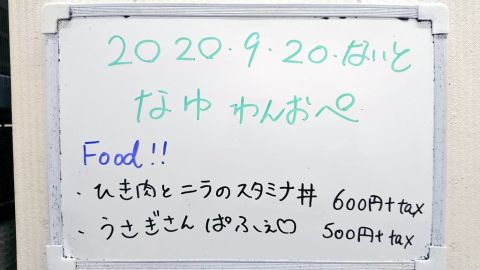 2020.9.20.ないと
なゆ わんおぺ
Food!!
・ひき肉とニラのスタミナ丼 600円+tax
・うさぎさん ぱふぇ♡ 500円+tax